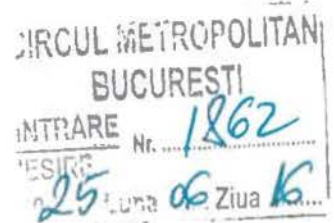 CIRCUL METROPOLITAN
BUCURESTI
INTRARE Nr. 1862
IESIRE
25 Luna 06 Ziua 16